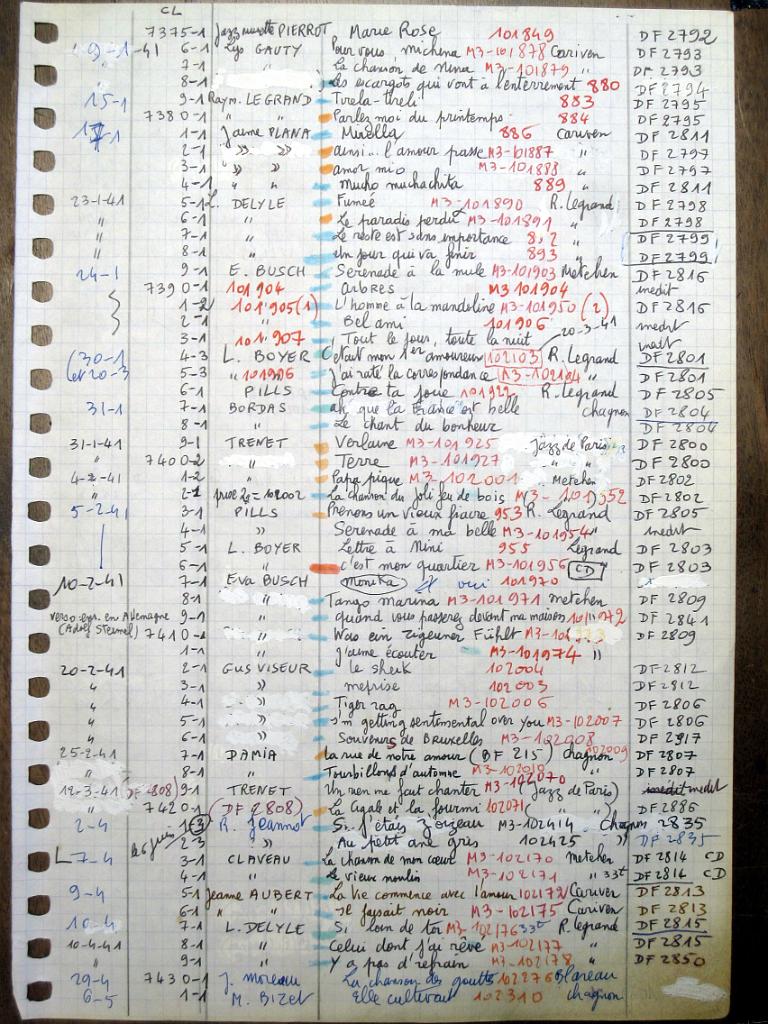 CL
7375-1 Jazz musette PIERROT Marie Rose 101849 DF 2792
9-1-41 6-1 Lys GAUTY Pour vous michina M3-101878 Cariven DF 2793
7-1 La chanson de Nina M3-101879 " DF 2793
8-1 Les escargots qui vont à l'enterrement 880 DF 2794
15-1 9-1 Raym. LEGRAND Tirela-tireli 883 DF 2795
7380-1 " " Parlez moi du printemps 884 DF 2795
17-1 1-1 Jaime PLANA Mirella 886 Cariven DF 2811
2-1 " " ainsi... l'amour passe M3-101887 " DF 2797
3-1 " " amor mio M3-101888 " DF 2797
4-1 " " Mucho muchachita 889 " DF 2811
23-1-41 5-1 L. DELYLE Fumée M3-101890 R. Legrand DF 2798
" 6-1 " Le paradis perdu M3-101891 " DF 2798
" 7-1 " Le reste est sans importance " DF 2799
" 8-1 " Un jour qui va finir 893 " DF 2799
24-1 9-1 E. BUSCH Serenade à la mule M3-101903 Metehen DF 2816
7390-1 101904 arbres M3 101904 inedit
1-2 101905 (1) L'homme à la mandoline M3-101950 (2) DF 2816
2-1 " Bel ami 101906 inedit
3-1 101907 Tout le jour, toute la nuit 20-3-41 inedit
(30-1 4-3 L. BOYER C'etait mon 1er amoureux 102103 R. Legrand DF 2801
et 20-3 5-3 " 101906 j'ai raté la correspondance M3-102104 " DF 2801
6-1 PILLS Contre ta joue 101922 R. Legrand DF 2805
31-1 7-1 BORDAS ah que la France est belle chagnon DF 2804
8-1 " Le chant du bonheur DF 2804
31-1-41 9-1 TRENET Verlaine M3-101925 Jazz de Paris DF 2800
7400-2 " Terre M3-101927 " " DF 2800
4-2-41 1-2 " Papa pique M3-102001 Metehen DF 2802
" 2-1 prise 2 = 102002 La chanson du joli feu de bois DF 2802
5-2-41 3-1 PILLS Prenons un vieux fiacre 953 R. Legrand DF 2805
4-1 " Serenade à ma belle M3-101954 " inedit
5-1 L. BOYER Lettre à Nini 955 Legrand DF 2803
6-1 " c'est mon quartier M3-101956 CD DF 2803
10-2-41 7-1 Eva BUSCH monika oui 101970
8-1 " Tango marina M3-101971 metehen DF 2809
verso enr. en Allemagne 9-1 " quand vous passerez devant ma maison 101972 DF 2841
7410-1 " Was ein Zigeuner Fühlt DF 2809
1-1 " J'aime écouter M3-101974 "
20-2-41 2-1 GUS VISEUR le sheik 102004 DF 2812
" 3-1 " meprise 102003 DF 2812
" 4-1 " Tiger rag M3-102006 DF 2806
" 5-1 " I'm getting sentimental over you M3-102007 DF 2806
" 6-1 " Souvenirs de Bruxelles M3-102008 DF 2917
25-2-41 7-1 DAMIA la rue de notre amour (DF 215) chagnon 102009 DF 2807
" 8-1 " Tourbillons d'automne M3-102010 " DF 2807
12-3-41 (DF 2808) 9-1 TRENET Un rien me fait chanter M3-102070 (Jazz de Paris) inedit
" 7420-1 (DF 2808) La cigale et la fourmi 102071 " DF 2886
2-4 le 6 juin 1-3 R. Jeannot Si j'étais z'oizeau M3-102414 Chagnon 2835
2-3 " Au petit ane gris 102425 " DF 2835
7-4 3-1 CLAVEAU La chanson de mon coeur M3-102170 Metehen DF 2814 CD
4-1 " Le vieux moulin M3-102171 " 33t DF 2814 CD
9-4 5-1 Jeanne AUBERT La vie commence avec l'amour 102172 Cariven DF 2813
6-1 " Il faisait noir M3-102175 Cariven DF 2813
10-4 7-1 L. DELYLE Si loin de toi M3-102176 33t R. Legrand DF 2815
10-4-41 8-1 " Celui dont j'ai rêvé M3-102177 " DF 2815
9-1 " Y a pas d'refrain M3-102178 " DF 2850
29-4 7430-1 J. Moreau La chanson des gouttes 102276 Blareau
6-5 1-1 M. Bizet Elle cultivait 102310 chagnon